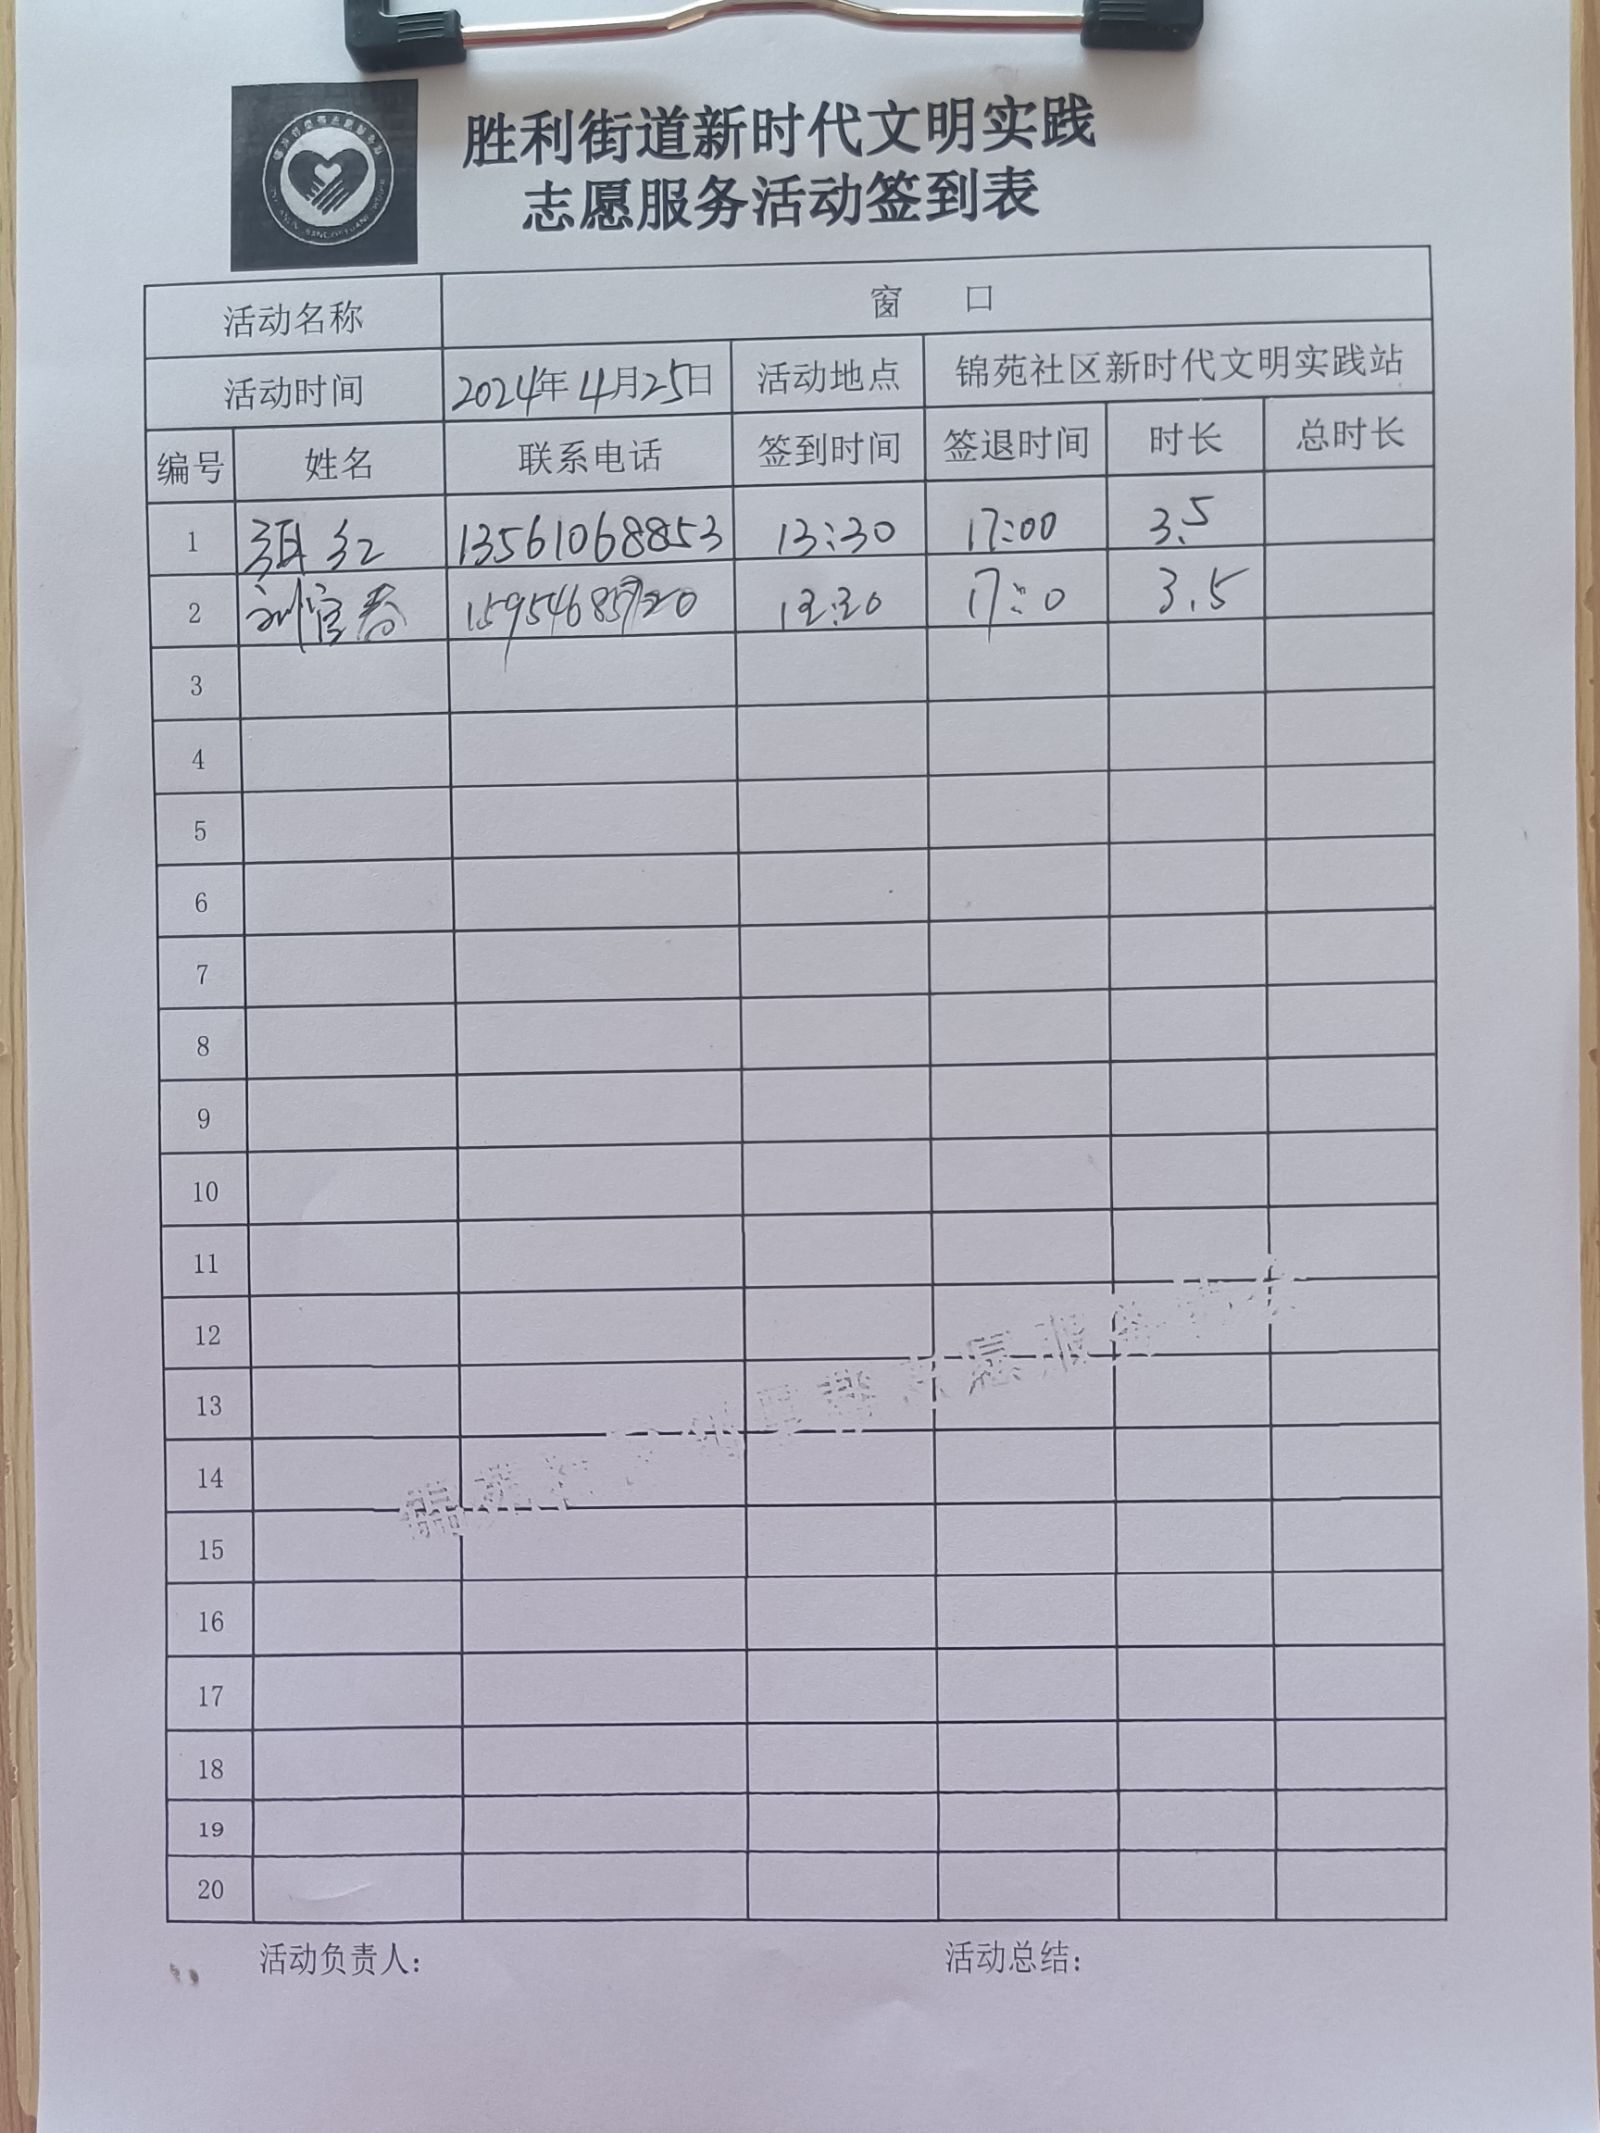 胜利街道新时代文明实践
志愿服务活动签到表
活动名称 窗 口
活动时间 2024年4月25日 活动地点 锦苑社区新时代文明实践站
编号 姓名 联系电话 签到时间 签退时间 时长 总时长
1 红 13561068853 13:30 17:00 3.5
2 刘官春 3.5
3
4
5
6
7
8
9
10
11
12
13
14
15
16
17
18
19
20
活动负责人:  活动总结: